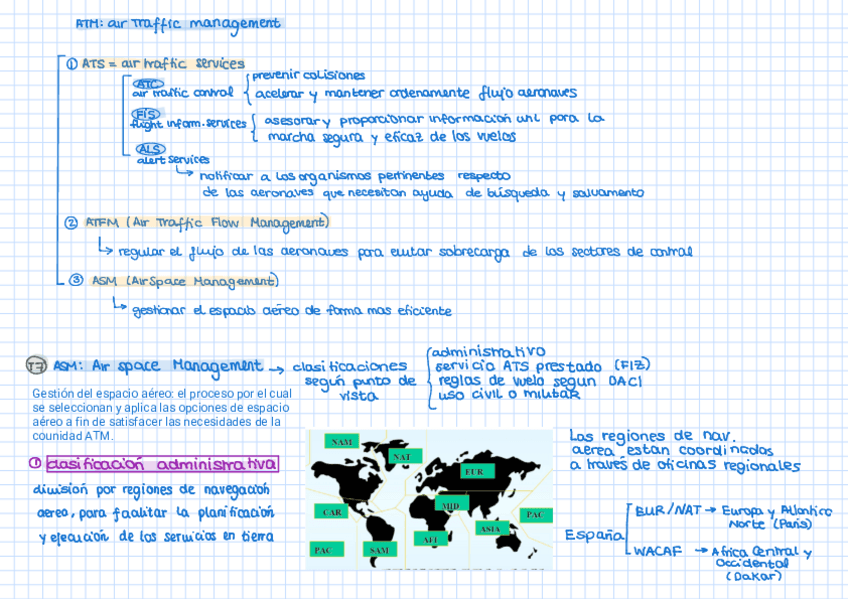 ATM: air traffic management
① ATS = air traffic services
ATC
air traffic control
prevenir colisiones
acelerar y mantener ordenamente flujo aeronaves
FIS
flight inform. services
asesorar y proporcionar información util para la
marcha segura y eficaz de los vuelos
ALS
alert services
notificar a los organismos pertinentes respecto
de las aeronaves que necesitan ayuda de búsqueda y salvamento
② ATFM (Air Traffic Flow Management)
regular el flujo de las aeronaves para evitar sobrecarga de los sectores de control
③ ASM (Air Space Management)
gestionar el espacio aéreo de forma mas eficiente
T7 ASM: Air space Management → clasificaciones
según punto de
vista
administrativo
servicio ATS prestado (FIZ)
reglas de vuelo segun OACI
uso civil o militar
Gestión del espacio aéreo: el proceso por el cual
se seleccionan y aplica las opciones de espacio
aéreo a fin de satisfacer las necesidades de la
counidad ATM.
① clasificación administrativa
división por regiones de navegación
aereo, para facilitar la planificación
y ejecución de los servicios en tierra
NAM
NAT
EUR
CAR
MID
PAC
AFI
ASIA
PAC
SAM
Las regiones de nav.
aerea están coordinados
a través de oficinas regionales
España
EUR/NAT → Europa y Atlántico
Norte (París)
WACAF → Africa Central y
Occidental
(Dakar)